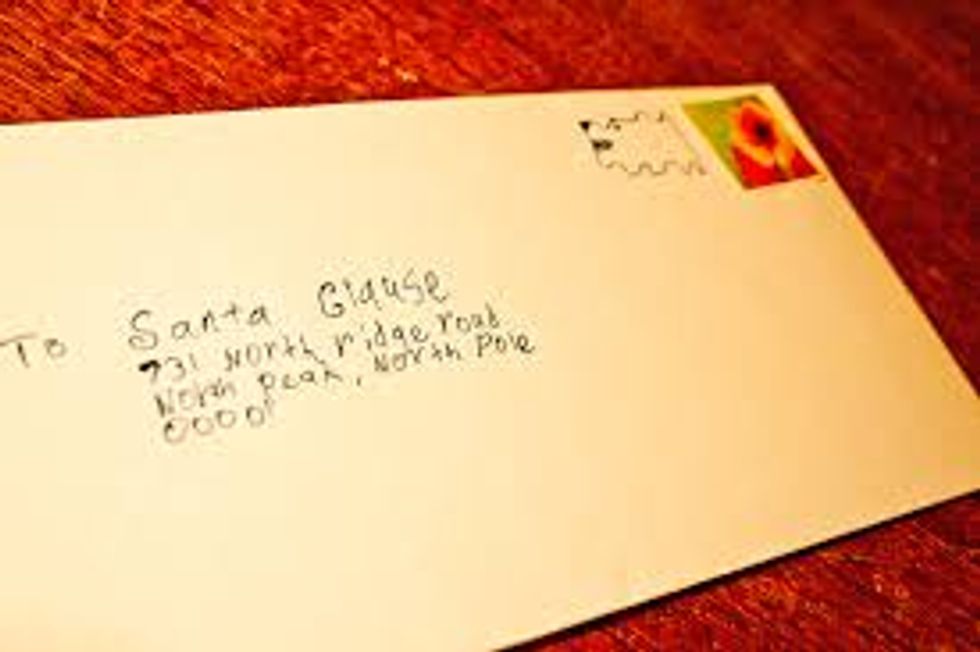 To Santa Glause
731 North ridge road
North peak, North Pole
00001